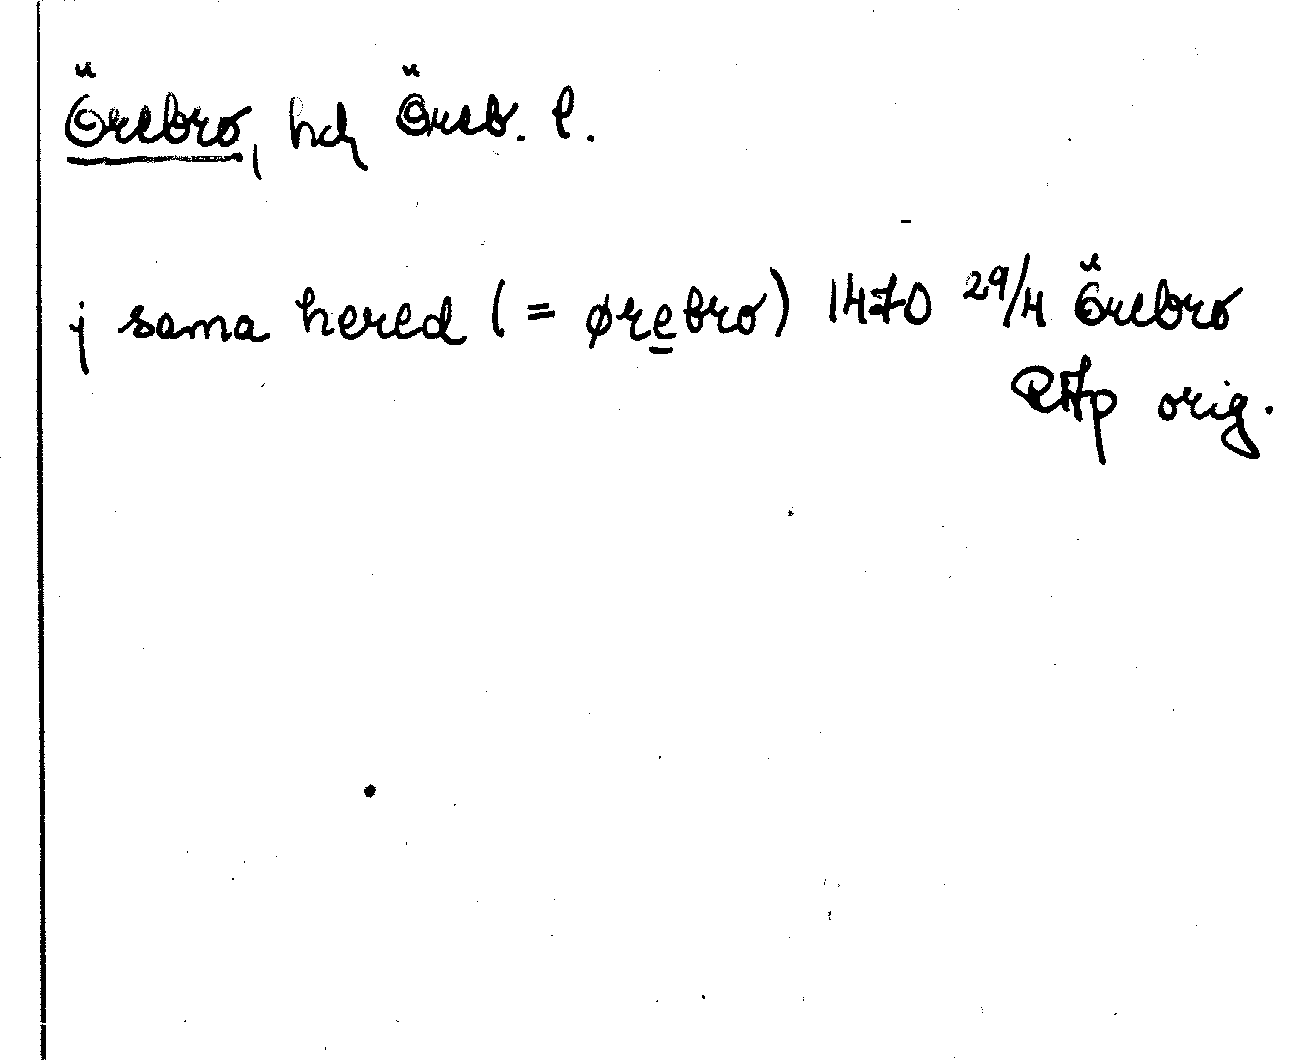 Örebro, hd, Öreb. l.
j sama hered (= ørebro) 1470 29/4 Örebro
RAp orig.